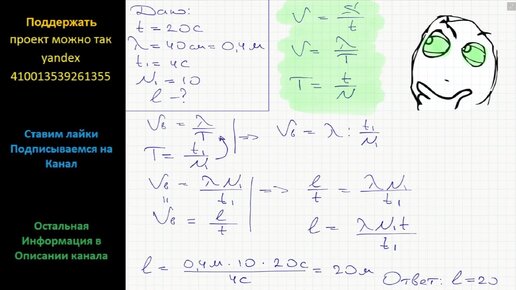 Поддержать
проект можно так
yandex
410013539261355
Ставим лайки
Подписываемся на
Канал
Остальная
Информация в
Описании канала
Дано:
t = 20с
λ = 40см = 0,4м
t₁ = 4с
N₁ = 10
l - ?
V = S/t
V = λ/T
T = t/N
Vв = λ/T
T = t₁/N₁
=> Vв = λ : t₁/N₁
Vв = λN₁/t₁
"
Vв = l/t
=> l/t = λN₁/t₁
l = λN₁t/t₁
l = 0,4м · 10 · 20с/4с = 20м
Ответ: l = 20